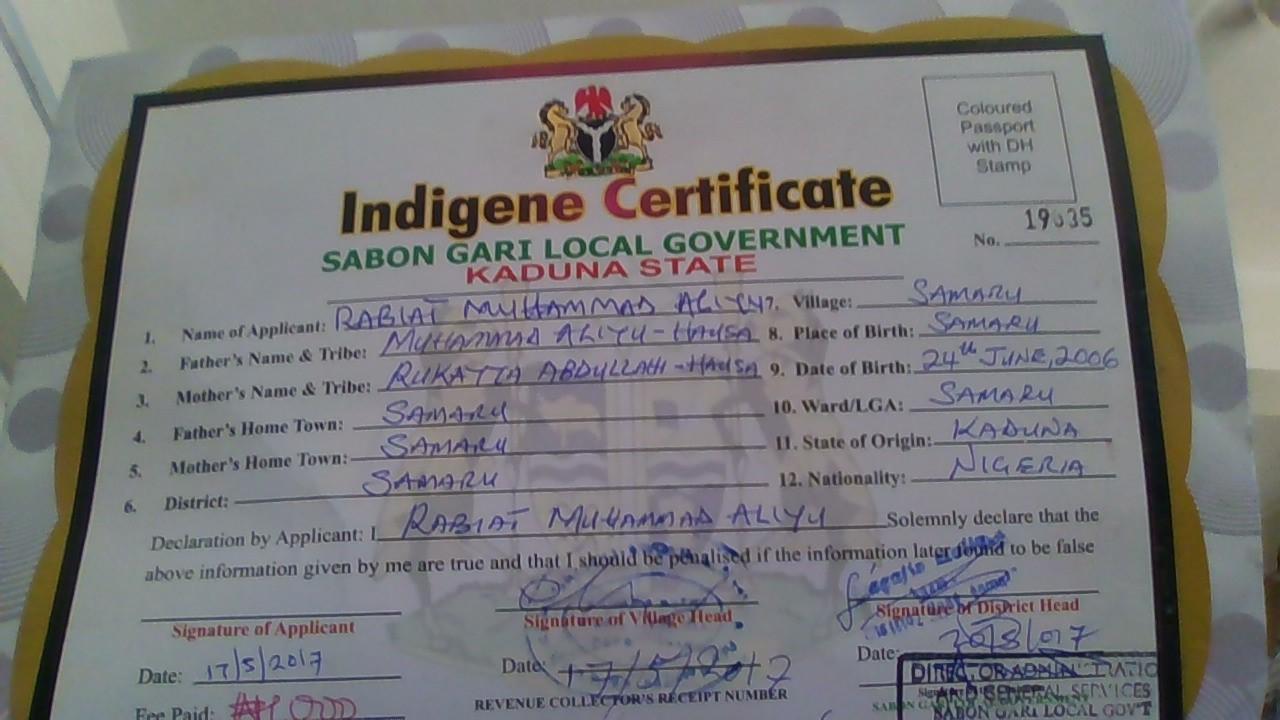 Coloured
Passport
with DH
Stamp
Indigene Certificate
SABON GARI LOCAL GOVERNMENT
KADUNA STATE
No. 19035
1. Name of Applicant: RABIAT MUHAMMAD ALIYU
2. Father's Name & Tribe: MUHAMMAD ALIYU-HAUSA
3. Mother's Name & Tribe: RUKAYYA ABDULLAHI-HAUSA
4. Father's Home Town: SAMARU
5. Mother's Home Town: SAMARU
6. District: SAMARU
7. Village: SAMARU
8. Place of Birth: SAMARU
9. Date of Birth: 24th JUNE, 2006
10. Ward/LGA: SAMARU
11. State of Origin: KADUNA
12. Nationality: NIGERIA
Declaration by Applicant: I RABIAT MUHAMMAD ALIYU Solemnly declare that the
above information given by me are true and that I should be penalised if the information later found to be false
Signature of Applicant
Signature of Village Head
Signature of District Head
Date: 17/5/2017
Date: 17/5/2017
Date:
Fee Paid:
REVENUE COLLECTOR'S RECEIPT NUMBER
GENERAL SERVICES
SABON GARI LOCAL GOV'T